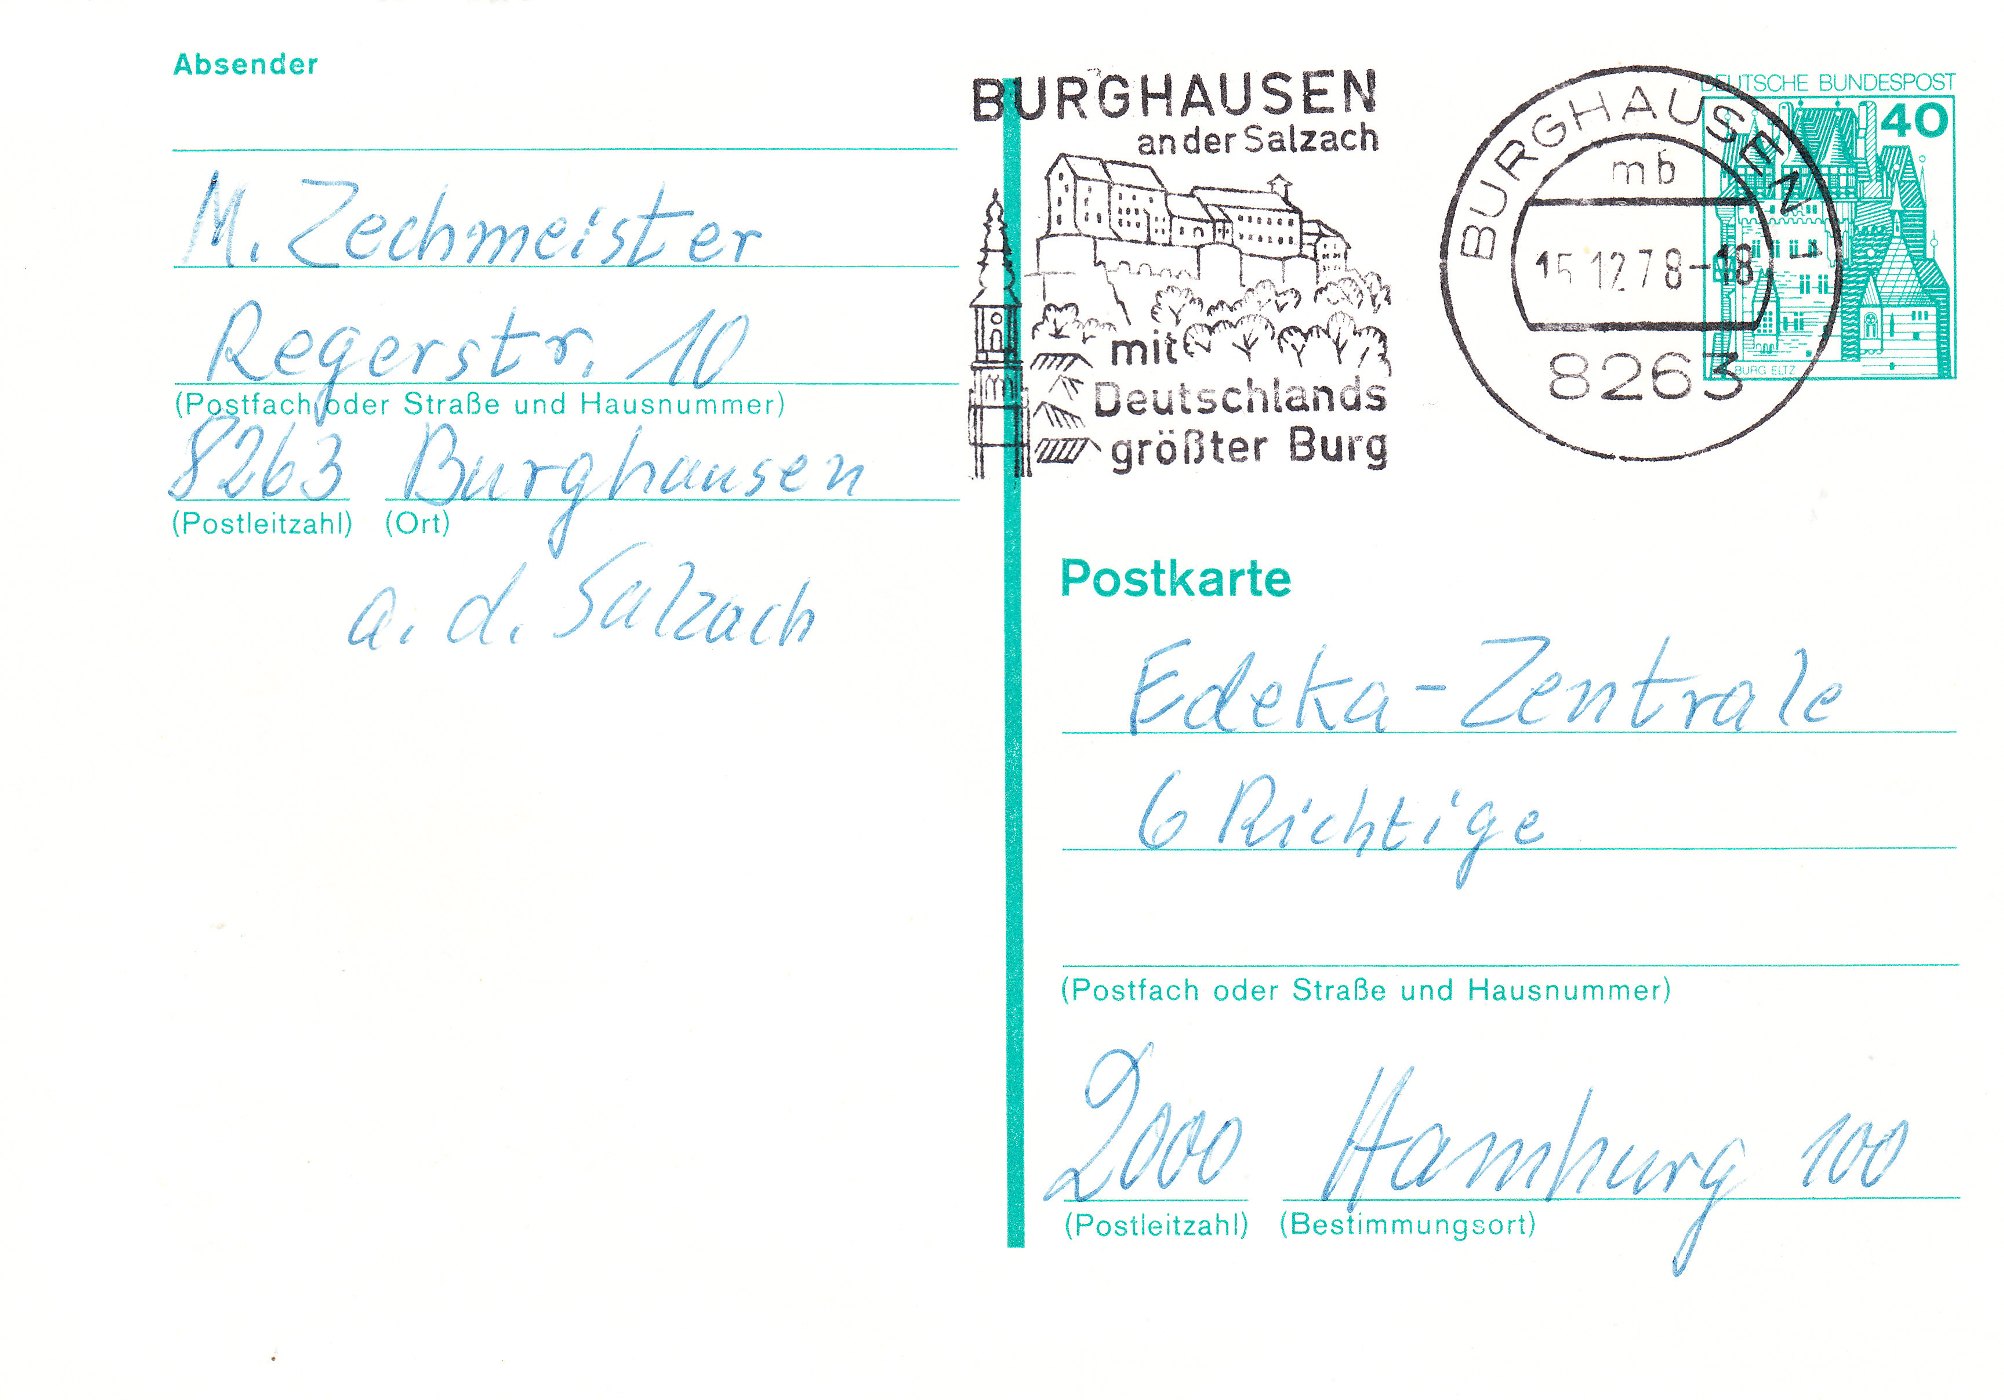 Absender
M. Zechmeister
Regerstr. 10
(Postfach oder Straße und Hausnummer)
8263 Burghausen
(Postleitzahl) (Ort)
a. d. Salzach
BURGHAUSEN
an der Salzach
mit
Deutschlands
größter Burg
BURGHAUSEN 1
mb
15.12.78-18
8263
DEUTSCHE BUNDESPOST
40
BURG ELTZ
Postkarte
Edeka-Zentrale
6 Richtige
(Postfach oder Straße und Hausnummer)
2000 Hamburg 100
(Postleitzahl) (Bestimmungsort)